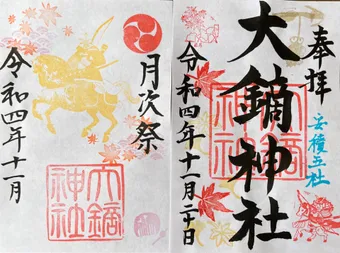 奉拝
安積三社
大鏑神社
令和四年十一月二十日
大鏑神社
月次祭
令和四年十一月
大鏑神社